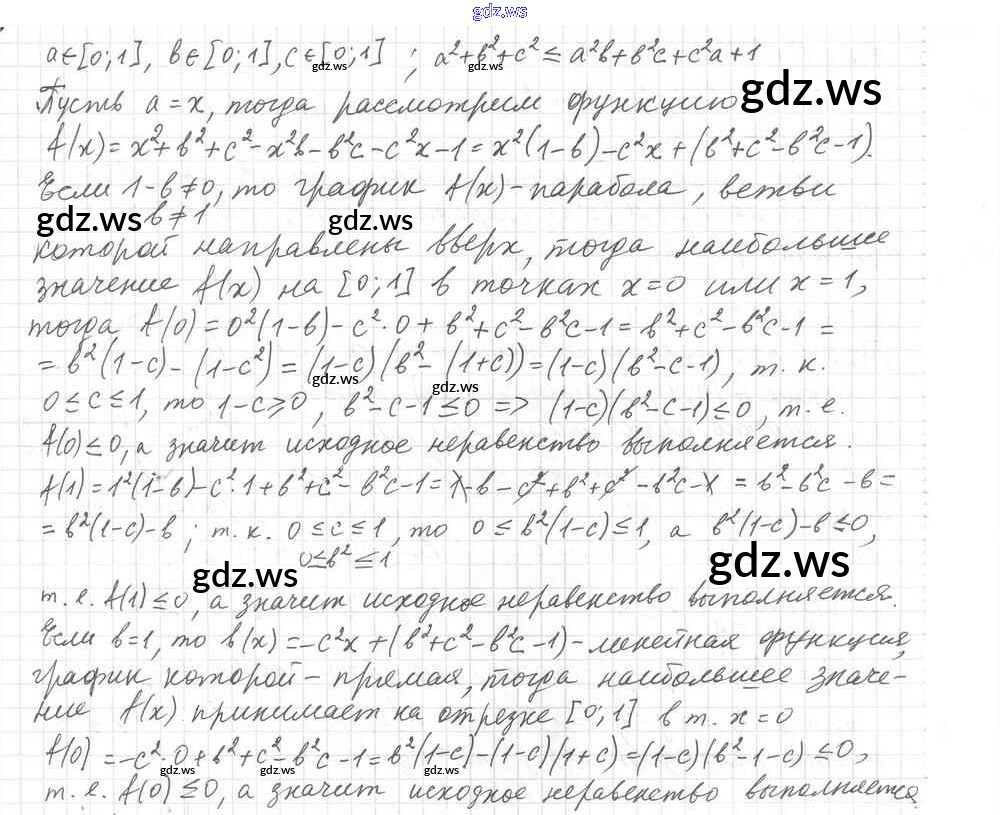 gdz.ws
a∈[0;1], b∈[0;1], c∈[0;1] ; a²+b²+c² ≤ a²b+b²c+c²a+1
gdz.ws gdz.ws
Пусть a=x, тогда рассмотрим функцию
gdz.ws
f(x)=x²+b²+c²-x²b-b²c-c²x-1=x²(1-b)-c²x+(b²+c²-b²c-1).
Если 1-b≠0, то график f(x)-парабола, ветви
gdz.ws b≠1 gdz.ws
которой направлены вверх, тогда наибольшее
значение f(x) на [0;1] в точках x=0 или x=1,
тогда f(0)=0²(1-b)-c²·0+b²+c²-b²c-1=b²+c²-b²c-1=
=b²(1-c)-(1-c²)=(1-c)(b²-(1+c))=(1-c)(b²-c-1), т.к.
gdz.ws gdz.ws
0≤c≤1, то 1-c≥0, b²-c-1≤0 => (1-c)(b²-c-1)≤0, т.е.
f(0)≤0, а значит исходное неравенство выполняется.
f(1)=1²(1-b)-c²·1+b²+c²-b²c-1=1-b-c²+b²+c²-b²c-1=b²-b²c-b=
=b²(1-c)-b; т.к. 0≤c≤1, то 0≤b²(1-c)≤1, а b²(1-c)-b≤0,
0≤b²≤1
gdz.ws gdz.ws
т.е. f(1)≤0, а значит исходное неравенство выполняется.
Если b=1, то b(x)=-c²x+(b²+c²-b²c-1)-линейная функция,
график которой-прямая, тогда наибольшее значе-
ние f(x) принимает на отрезке [0;1] в т. x=0
f(0)=-c²·0+b²+c²-b²c-1=b²(1-c)-(1-c)(1+c)=(1-c)(b²-1-c)≤0,
gdz.ws gdz.ws gdz.ws
т.е. f(0)≤0, а значит исходное неравенство выполняется